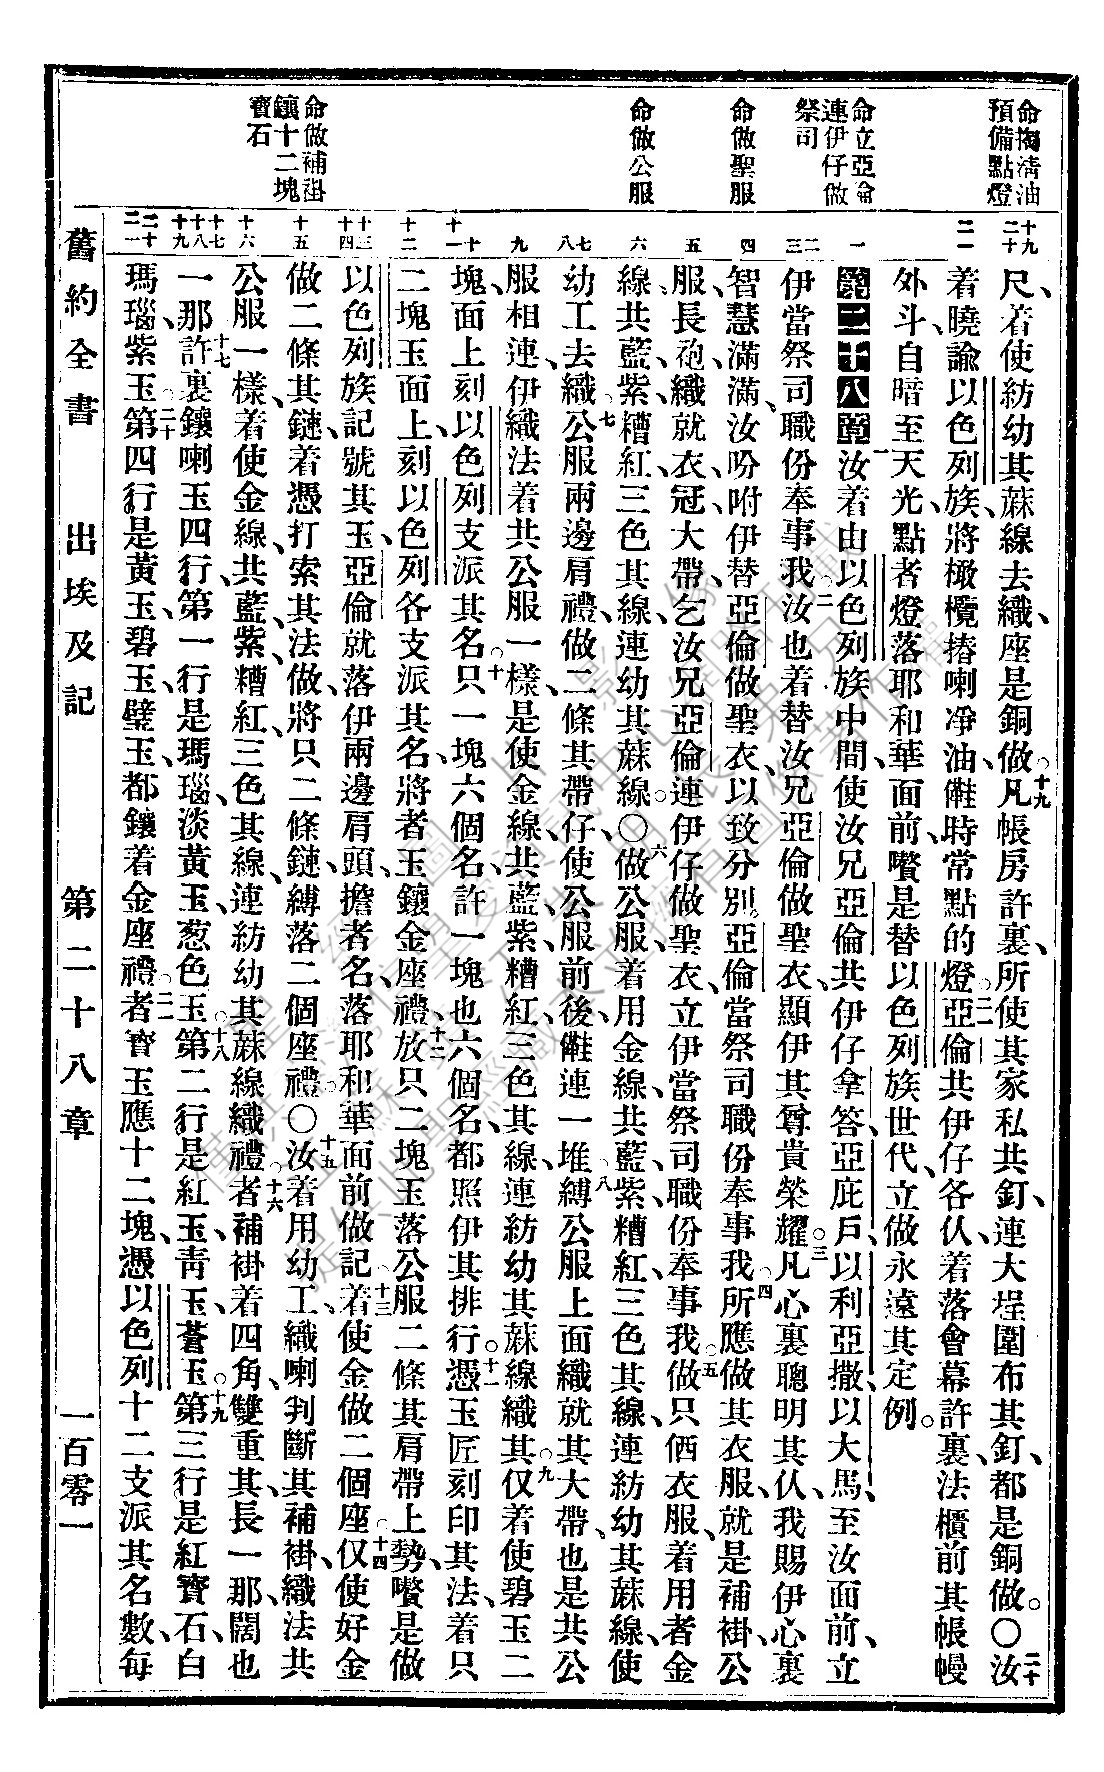 命搗淸油
預備點燈
命立亞倫
連伊仔做
祭司
命做聖服
命做公服
命做補褂
鑲十二塊
寶石
十九
二十
二一
一
二
三
四
五
六
七
八
九
十
十一
十二
十三
十四
十五
十六
十七
十八
十九
二十
二一
尺、着使紡幼其蔴線去織、座是銅做。十九凡帳房許裏、所使其家私共釘、連大埕圍布其釘、都是銅做。〇二十汝
着曉諭以色列族、將橄欖摏喇凈油、儺時常點的燈。二一亞倫共伊仔各仈、着落會幕許裏、法櫃前其帳幔
外斗、自暗至天光、點者燈落耶和華面前、嚽是替以色列族世代、立做永遠其定例。
第二十八章一汝着由以色列族中間、使汝兄亞倫共伊仔拿答、亞庇戶、以利亞撒、以大馬、至汝面前、立
伊當祭司職份奉事我。二汝也着替汝兄亞倫做聖衣、顯伊其尊貴榮耀。三凡心裏聰明其仈、我賜伊心裏
智慧滿滿、汝吩咐伊替亞倫做聖衣、以致分別。亞倫當祭司職份奉事我。四所應做其衣服、就是補褂、公
服、長袍、織就衣、冠、大帶、乞汝兄亞倫連伊仔做聖衣、立伊當祭司職份奉事我。五做只俩衣服、着用者金
線共藍、紫、糟紅、三色其線、連幼其蔴線。〇六做公服、着用金線、共藍、紫、糟紅、三色其線、連紡幼其蔴線、使
幼工去織。七公服兩邊肩禮、做二條其帶仔、使公服前後、儺連一堆縛。八公服上面織就其大帶、也是共公
服相連、伊織法着共公服一樣、是使金線、共藍、紫、糟紅、三色其線、連紡幼其蔴線織其。九仅着使碧玉二
塊、面上刻以色列支派其名。十只一塊六個名、許一塊也六個名、都照伊其排行。十一憑玉匠刻印其法、着只
二塊玉面上、刻以色列各支派其名、將者玉鑲金座禮、十二放只二塊玉落公服二條其肩帶上勢、嚽是做
以色列族記號其玉、亞倫就落伊兩邊肩頭、擔者名、落耶和華面前做記。十三着使金做二個座。十四仅使好金
做二條其鏈、着憑打索其法做、將只二條鏈、縛落二個座禮。〇十五汝着用幼工、織喇判斷其補褂、織法共
公服一樣、着使金線、共藍、紫、糟紅、三色其線、連紡幼其蔴線織禮。十六者補褂着四角、雙重其、長一那、闊也
一那。十七許裏鑲喇玉四行、第一行是瑪瑙、淡黃玉、葱色玉。十八第二行是紅玉、靑玉、蒼玉。十九第三行是紅寶石、白
瑪瑙、紫玉。二十第四行是黃玉、碧玉、璧玉、都鑲着金座禮。二一者寶玉應十二塊、憑以色列十二支派其名數、每
舊約全書 出埃及記 第二十八章 一百零一